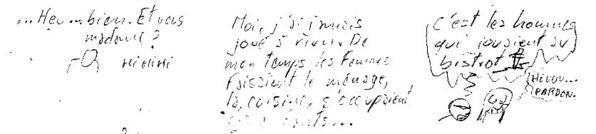 ...Heu...bien. Et vous
madame?
HiHiHi
Moi, j'ai jamais
joué à rien. De
mon temps les femmes
faisaient le ménage,
la cuisine, s'occupaient
C'est les hommes
qui jouaient au
bistrot
HEUOU...
PARDON.